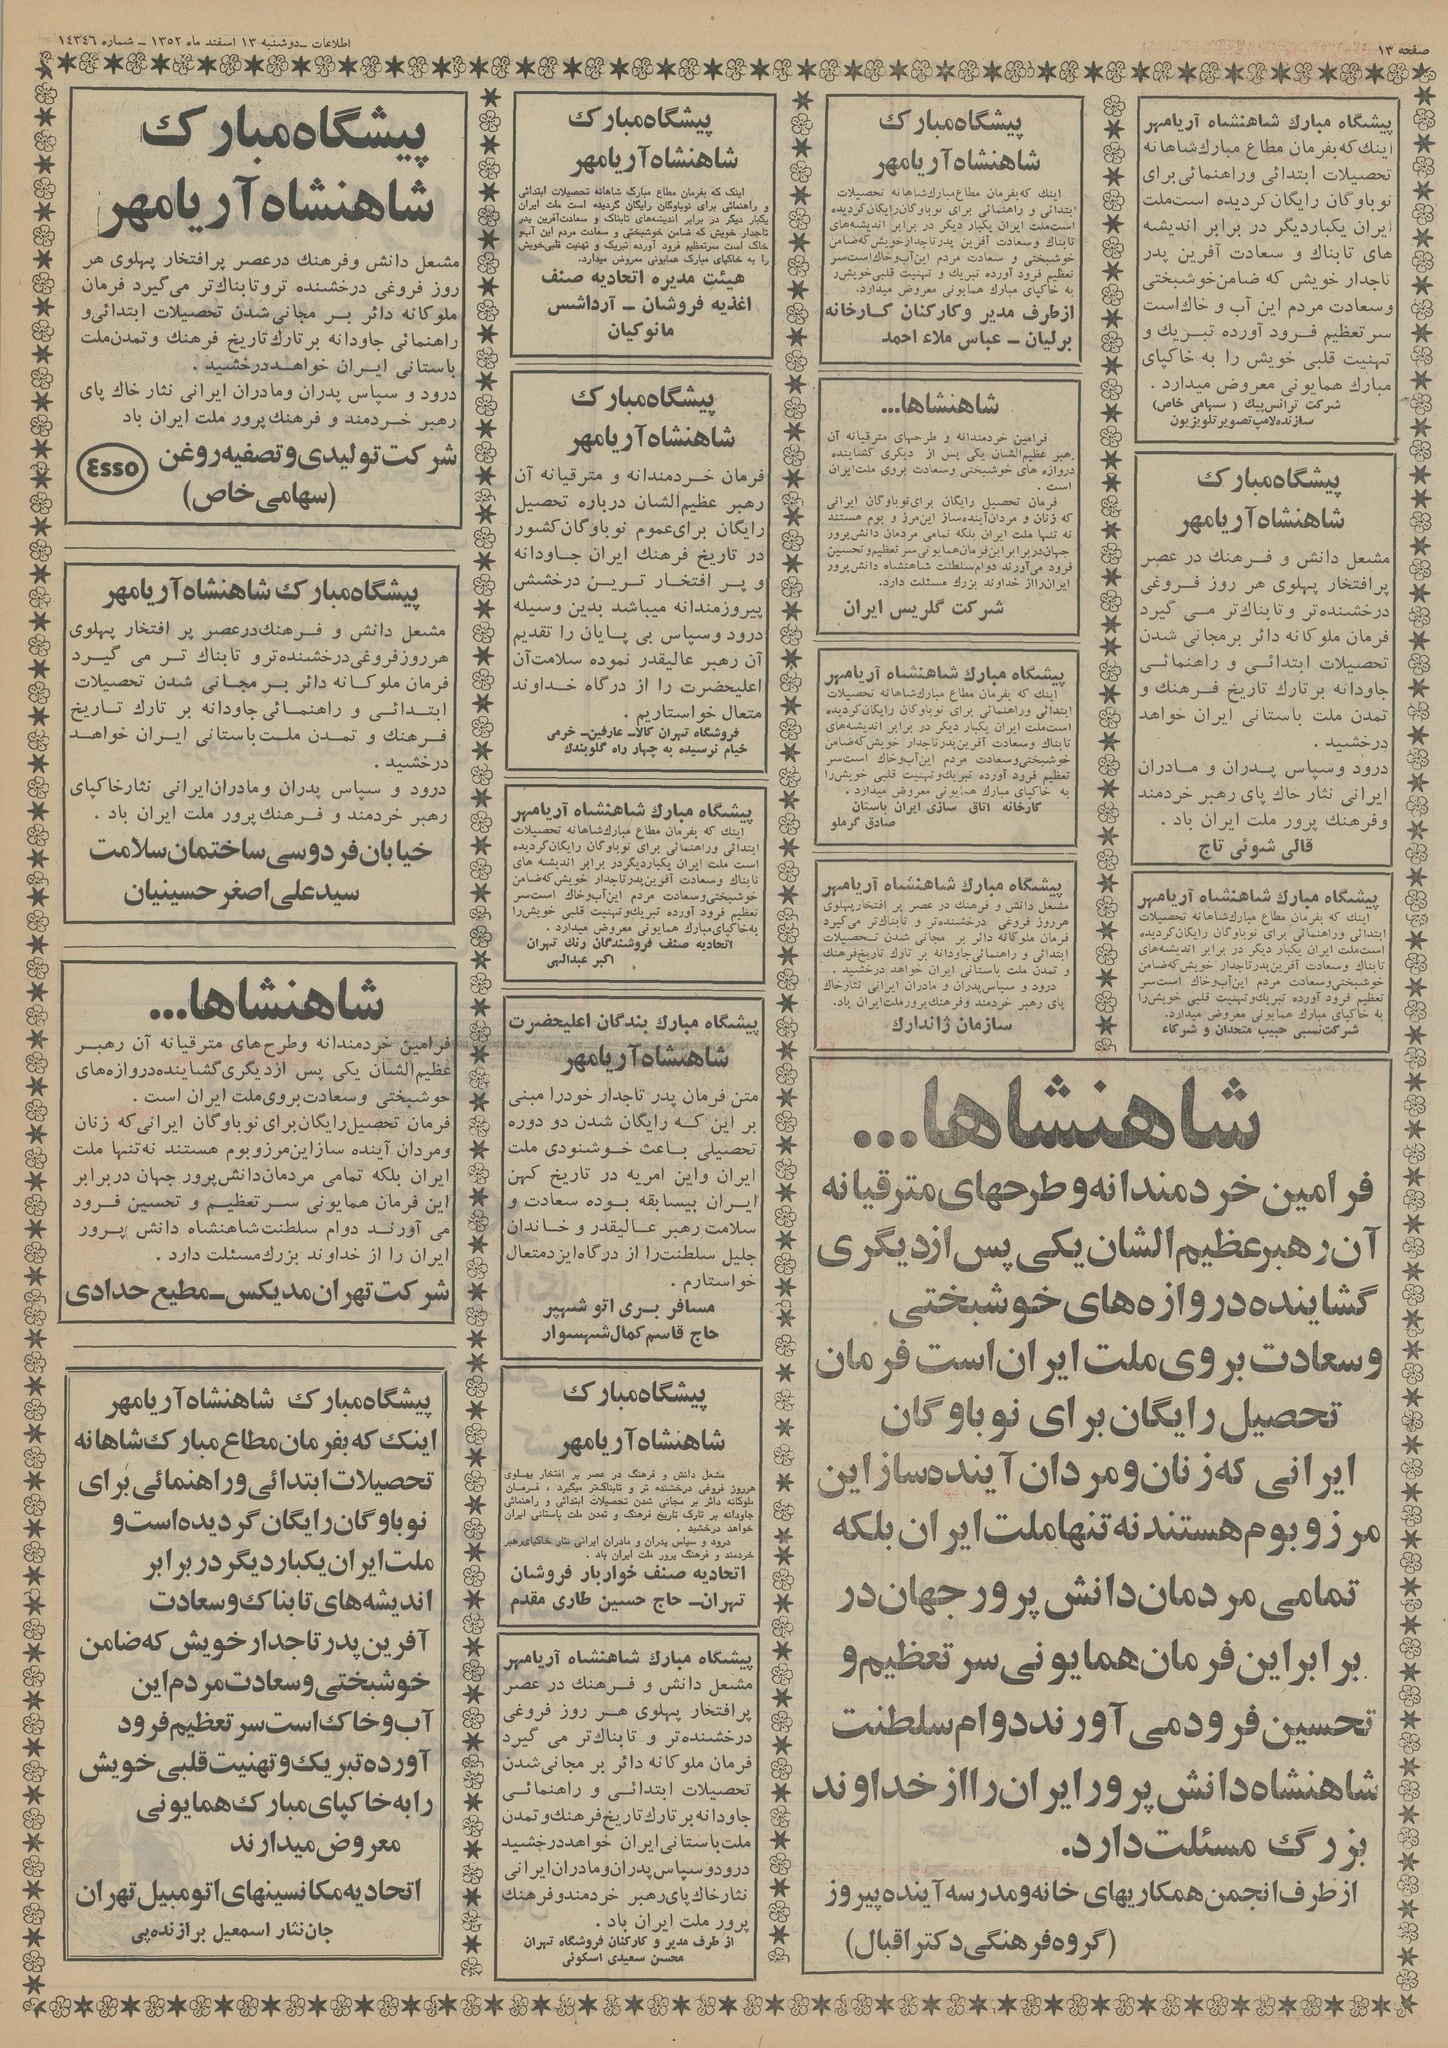 صفحه ۱۳
اطلاعات ـ دوشنبه ۱۳ اسفند ماه ۱۳۵۲ ـ شماره ۱۴۳۴۶
پیشگاه مبارك شاهنشاه آریامهر
اینك که بفرمان مطاع مبارك شاهانه
تحصیلات ابتدائی وراهنمائی برای
نوباوگان رایگان گردیده است ملت
ایران یکباردیگر در برابر اندیشه
های تابناك و سعادت آفرین پدر
تاجدار خویش که ضامن خوشبختی
وسعادت مردم این آب و خاك است
سر تعظیم فرود آورده تبریك و
تهنیت قلبی خویش را به خاکپای
مبارك همایونی معروض میدارد .
شرکت ترانس پیك ( سهامی خاص )
سازنده لامپ تصویر تلویزیون
پیشگاه مبارك
شاهنشاه آریامهر
مشعل دانش و فرهنك در عصر
پرافتخار پهلوی هر روز فروغی
درخشنده تر و تابناك تر می گیرد
فرمان ملوکانه دائر بر مجانی شدن
تحصیلات ابتدائی و راهنمائی
جاودانه بر تارك تاریخ فرهنك و
تمدن ملت باستانی ایران خواهد
درخشید .
درود وسپاس پدران و مادران
ایرانی نثار خاك پای رهبر خردمند
وفرهنك پرور ملت ایران باد .
قالی شوئی تاج
پیشگاه مبارك شاهنشاه آریامهر
اینك که بفرمان مطاع مبارك شاهانه تحصیلات
ابتدائی وراهنمائی برای نوباوگان رایگان گردیده
است ملت ایران یکبار دیگر در برابر اندیشه های
تابناك وسعادت آفرین پدر تاجدار خویش که ضامن
خوشبختی وسعادت مردم این آب وخاك است سر
تعظیم فرود آورده تبریك وتهنیت قلبی خویش را
به خاکپای مبارك همایونی معروض میدارد.
شرکت نسبی حبیب متحدان و شرکاء
پیشگاه مبارك
شاهنشاه آریامهر
اینك که بفرمان مطاع مبارك شاهانه تحصیلات
ابتدائی و راهنمائی برای نوباوگان رایگان گردیده
است ملت ایران یکبار دیگر در برابر اندیشه های
تابناك وسعادت آفرین پدر تاجدار خویش که ضامن
خوشبختی و سعادت مردم این آب وخاك است سر
تعظیم فرود آورده تبریك و تهنیت قلبی خویش را
به خاکپای مبارك همایونی معروض میدارد.
از طرف مدیر وکارکنان کارخانه
برلیان ـ عباس ملاء احمد
شاهنشاها...
فرامین خردمندانه و طرحهای مترقیانه آن
رهبر عظیم الشان یکی پس از دیگری گشاینده
دروازه های خوشبختی وسعادت بروی ملت ایران
است .
فرمان تحصیل رایگان برای نوباوگان ایرانی
که زنان و مردان آینده ساز این مرز و بوم هستند
نه تنها ملت ایران بلکه تمامی مردمان دانش پرور
جهان در برابر این فرمان همایونی سر تعظیم وتحسین
فرود می آورند دوام سلطنت شاهنشاه دانش پرور
ایران را از خداوند بزرك مسئلت دارد.
شرکت گلریس ایران
پیشگاه مبارك شاهنشاه آریامهر
اینك که بفرمان مطاع مبارك شاهانه تحصیلات
ابتدائی وراهنمائی برای نوباوگان رایگان گردیده
است ملت ایران یکبار دیگر در برابر اندیشه های
تابناك وسعادت آفرین پدر تاجدار خویش که ضامن
خوشبختی وسعادت مردم این آب وخاك است سر
تعظیم فرود آورده تبریك و تهنیت قلبی خویش را
به خاکپای مبارك همایونی معروض میدارد .
کارخانه اتاق سازی ایران باستان
صادق گرملو
پیشگاه مبارك شاهنشاه آریامهر
مشعل دانش و فرهنك در عصر پر افتخار پهلوی
هر روز فروغی درخشنده تر و تابناك تر می گیرد
فرمان ملوکانه دائر بر مجانی شدن تحصیلات
ابتدائی و راهنمائی جاودانه بر تارك تاریخ فرهنك
و تمدن ملت باستانی ایران خواهد درخشید .
درود و سپاس پدران و مادران ایرانی نثار خاك
پای رهبر خردمند وفرهنك پرور ملت ایران باد.
سازمان ژاندارك
شاهنشاها...
فرامین خردمندانه و طرحهای مترقیانه
آن رهبر عظیم الشان یکی پس از دیگری
گشاینده دروازه های خوشبختی
وسعادت بروی ملت ایران است فرمان
تحصیل رایگان برای نوباوگان
ایرانی که زنان و مردان آینده ساز این
مرز و بوم هستند نه تنها ملت ایران بلکه
تمامی مردمان دانش پرور جهان در
برابر این فرمان همایونی سر تعظیم و
تحسین فرود می آورند دوام سلطنت
شاهنشاه دانش پرور ایران را از خداوند
بزرگ مسئلت دارد.
از طرف انجمن همکاریهای خانه و مدرسه آینده پیروز
(گروه فرهنگی دکتر اقبال)
پیشگاه مبارك
شاهنشاه آریامهر
اینک که بفرمان مطاع مبارک شاهانه تحصیلات ابتدائی
و راهنمائی برای نوباوگان رایگان گردیده است ملت ایران
یکبار دیگر در برابر اندیشه‌های تابناک و سعادت‌آفرین پدر
تاجدار خویش که ضامن خوشبختی و سعادت مردم این آب و
خاک است سرتعظیم فرود آورده تبریک و تهنیت قلبی خویش
را به خاکپای مبارک همایونی معروض میدارد.
هیئت مدیره اتحادیه صنف
اغذیه فروشان ـ آرداشس
مانوکیان
پیشگاه مبارك
شاهنشاه آریامهر
فرمان خردمندانه و مترقیانه آن
رهبر عظیم الشان درباره تحصیل
رایگان برای عموم نوباوگان کشور
در تاریخ فرهنك ایران جاودانه
و پر افتخار ترین درخشش
پیروزمندانه میباشد بدین وسیله
درود وسپاس بی پایان را تقدیم
آن رهبر عالیقدر نموده سلامت آن
اعلیحضرت را از درگاه خداوند
متعال خواستاریم .
فروشگاه تهران کالا ـ عارفین ـ خرمی
خیام نرسیده به چهار راه گلوبندك
پیشگاه مبارك شاهنشاه آریامهر
اینك که بفرمان مطاع مبارك شاهانه تحصیلات
ابتدائی وراهنمائی برای نوباوگان رایگان گردیده
است ملت ایران یکبار دیگر در برابر اندیشه های
تابناك وسعادت آفرین پدر تاجدار خویش که ضامن
خوشبختی وسعادت مردم این آب وخاك است سر
تعظیم فرود آورده تبریك و تهنیت قلبی خویش را
به خاکپای مبارك همایونی معروض میدارد .
اتحادیه صنف فروشندگان رنك تهران
اکبر عبدالهی
پیشگاه مبارك بندگان اعلیحضرت
شاهنشاه آریامهر
متن فرمان پدر تاجدار خودرا مبنی
بر این که رایگان شدن دو دوره
تحصیلی باعث خوشنودی ملت
ایران واین امریه در تاریخ کهن
ایران بیسابقه بوده سعادت و
سلامت رهبر عالیقدر و خاندان
جلیل سلطنت را از درگاه ایزد متعال
خواستارم .
مسافر بری اتو شهپر
حاج قاسم کمال شهسوار
پیشگاه مبارك
شاهنشاه آریامهر
مشعل دانش و فرهنگ در عصر پر افتخار پهلوی
هر روز فروغی درخشنده تر و تابناکتر میگیرد ، فرمان
ملوکانه دائر بر مجانی شدن تحصیلات ابتدائی و راهنمائی
جاودانه بر تارک تاریخ فرهنگ و تمدن ملت باستانی ایران
خواهد درخشید .
درود و سپاس پدران و مادران ایرانی نثار خاکپای رهبر
خردمند و فرهنگ پرور ملت ایران باد .
اتحادیه صنف خواربار فروشان
تهران ـ حاج حسین طاری مقدم
پیشگاه مبارك شاهنشاه آریامهر
مشعل دانش و فرهنك در عصر
پرافتخار پهلوی هر روز فروغی
درخشنده تر و تابناك تر می گیرد
فرمان ملوکانه دائر بر مجانی شدن
تحصیلات ابتدائی و راهنمائی
جاودانه بر تارك تاریخ فرهنك و تمدن
ملت باستانی ایران خواهد درخشید
درود و سپاس پدران و مادران ایرانی
نثار خاك پای رهبر خردمند و فرهنك
پرور ملت ایران باد .
از طرف مدیر و کارکنان فروشگاه تهران
محسن سعیدی اسکوئی
پیشگاه مبارك
شاهنشاه آریامهر
مشعل دانش وفرهنك درعصر پرافتخار پهلوی هر
روز فروغی درخشنده تر و تابناك تر می گیرد فرمان
ملوکانه دائر بر مجانی شدن تحصیلات ابتدائی و
راهنمائی جاودانه بر تارك تاریخ فرهنك و تمدن ملت
باستانی ایران خواهد درخشید .
درود و سپاس پدران ومادران ایرانی نثار خاك پای
رهبر خردمند و فرهنك پرور ملت ایران باد
شرکت تولیدی و تصفیه روغن
(سهامی خاص)
Esso
پیشگاه مبارك شاهنشاه آریامهر
مشعل دانش و فرهنك در عصر پر افتخار پهلوی
هر روز فروغی درخشنده تر و تابناك تر می گیرد
فرمان ملوکانه دائر بر مجانی شدن تحصیلات
ابتدائی و راهنمائی جاودانه بر تارك تاریخ
فرهنك و تمدن ملت باستانی ایران خواهد
درخشید .
درود و سپاس پدران ومادران ایرانی نثار خاکپای
رهبر خردمند و فرهنك پرور ملت ایران باد .
خیابان فردوسی ساختمان سلامت
سید علی اصغر حسینیان
شاهنشاها...
فرامین خردمندانه وطرح های مترقیانه آن رهبر
عظیم الشان یکی پس از دیگری گشاینده دروازه های
خوشبختی وسعادت بروی ملت ایران است .
فرمان تحصیل رایگان برای نوباوگان ایرانی که زنان
ومردان آینده ساز این مرز و بوم هستند نه تنها ملت
ایران بلکه تمامی مردمان دانش پرور جهان در برابر
این فرمان همایونی سر تعظیم و تحسین فرود
می آورند دوام سلطنت شاهنشاه دانش پرور
ایران را از خداوند بزرك مسئلت دارد .
شرکت تهران مدیکس ـ مطیع حدادی
پیشگاه مبارک شاهنشاه آریامهر
اینک که بفرمان مطاع مبارک شاهانه
تحصیلات ابتدائی و راهنمائی برای
نوباوگان رایگان گردیده است و
ملت ایران یکبار دیگر در برابر
اندیشه های تابناک و سعادت
آفرین پدر تاجدار خویش که ضامن
خوشبختی و سعادت مردم این
آب و خاک است سر تعظیم فرود
آورده تبریک و تهنیت قلبی خویش
را به خاکپای مبارک همایونی
معروض میدارند
اتحادیه مکانسینهای اتومبیل تهران
جان نثار اسمعیل برازنده پی